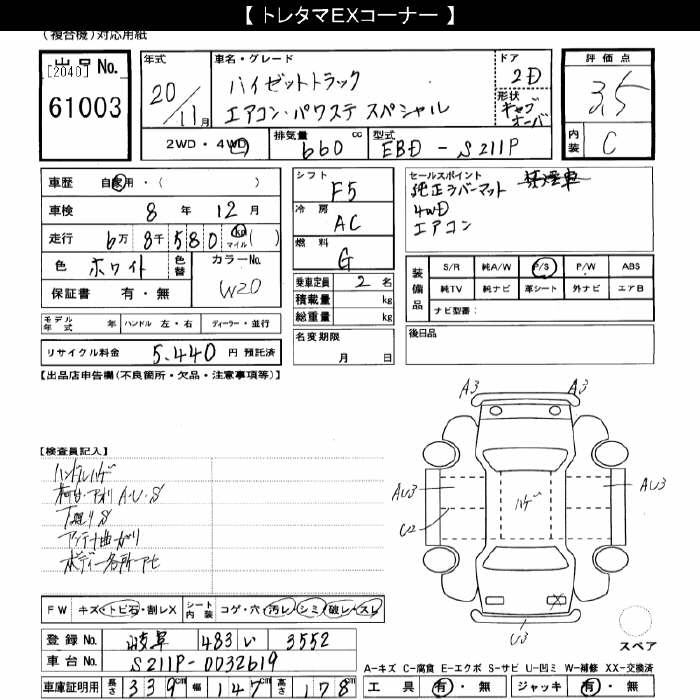 【 トレタマEXコーナー 】
(複合機)対応用紙
出品 No.
[2040]
61003
年式
20/11月
車名・グレード
ハイゼットトラック
エアコン・パワステ スペシャル
ドア
2D
形状
キャブオーバー
評価点
3.5
内装
C
2WD・4WD
排気量 660 cc
型式 EBD-S211P
車歴 自家用・( )
車検 8年 12月
走行 6万 8千 580 Km マイル ( )
色 ホワイト 色替 カラーNo. W20
保証書 有・無
モデル年式 年 ハンドル 左・右 ディーラー・並行
リサイクル料金 5,440 円 預託済
シフト F5
冷房 AC
燃料 G
乗車定員 2 名
積載量 kg
総重量 kg
名変期限
月 日
セールスポイント
純正ラバーマット 禁煙車
4WD
エアコン
装備品
S/R 純A/W P/S P/W ABS
純TV 純ナビ 革シート 外ナビ エアB
ナビ型番:
後日品
【出品店申告欄(不良箇所・欠品・注意事項等)】
【検査員記入】
ハンドルハゲ
A・U・S
下廻りS
アンテナ曲がり
ボディー各所アセ
A3 A3
AU3 AU3
U2
ハゲ
X
U3
スペア
FW キズ・トビ石・割レX シート内装 コゲ・穴・汚レ・シミ・破レ・スレ
登録 No. 岐阜 483 い 3552
車台 No. S211P-0032619
車庫証明用 長さ 339cm 幅 147cm 高さ 178cm
A-キズ C-腐食 E-エクボ S-サビ U-凹ミ W-補修 XX-交換済
工具 有・無 ジャッキ 有・無